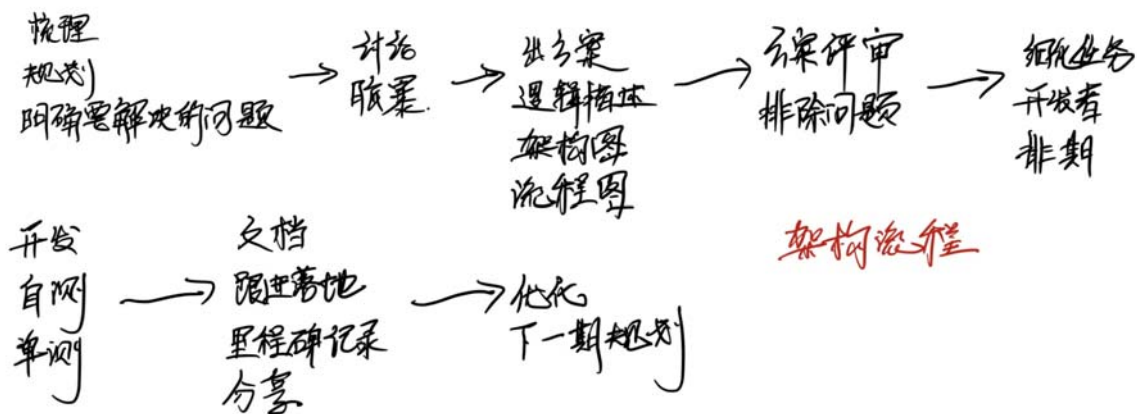 梳理
规划
明确要解决的问题
讨论
脑暴.
出方案
逻辑描述
架构图
流程图
方案评审
排除问题
细化任务
开发者
排期
开发
自测
单测
文档
跟进落地
里程碑记录
分享
优化
下一期规划
架构流程